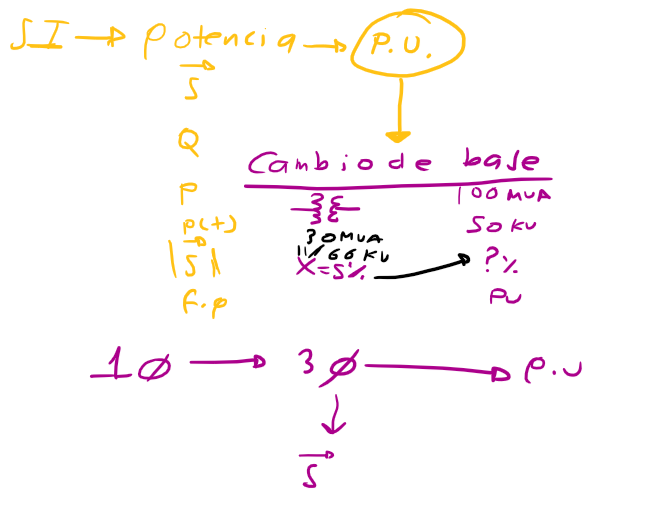 SI → potencia → P.U.
S
Q
P
P(t)
|S|
F.p
Cambio de base
30MVA
11/66 KV
X=5%
100 MVA
50 KV
?%
PU
1Ø → 3Ø → P.U
S